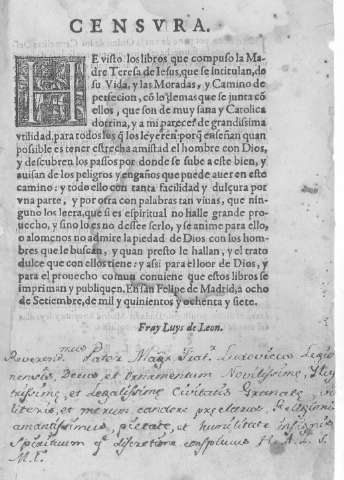 CENSVRA.
HE visto los libros que compuso la Ma
dre Teresa de Iesus, que se intitulan, de
su Vida, y las Moradas, y Camino de
perfecion, cõ lo demas que se junta cõ
ellos, que son de muy sana y Catolica
dotrina, y a mi parecer de grandissima
vtilidad, para todos los q̃ los leyerẽ: porq̃ enseñan quan
possible es tener estrecha amistad el hombre con Dios,
y descubren los passos por donde se sube a este bien, y
auisan de los peligros y engaños que puede auer en este
camino: y todo ello con tanta facilidad y dulçura por
vna parte, y por otra con palabras tan viuas, que nin-
guno los leera, que si es espiritual no halle grande pro-
uecho, y sino lo es no dessee serlo, y se anime para ello,
o alomenos no admire la piedad de Dios con los hom-
bres que le buscan, y quan presto le hallan, y el trato
dulce que con ellos tiene: y assi para el loor de Dios, y
para el prouecho comun conuiene que estos libros se
impriman y publiquen. En san Felipe de Madrid, a ocho
de Setiembre, de mil y quinientos y ochenta y siete.
Fray Luys de Leon.
Reverendmus Pater Mag. Frat. Ludovicus Legio
nensis, Decus et ornamentum Novilissime,
et Legalissime Civitatis Granate,
literis, et morum candore preclarus, Religionis
amantissimus, pietate, et humilitate insignis
Spirituum q̃ discretione conspicuus H. A. L. S.
M.E.